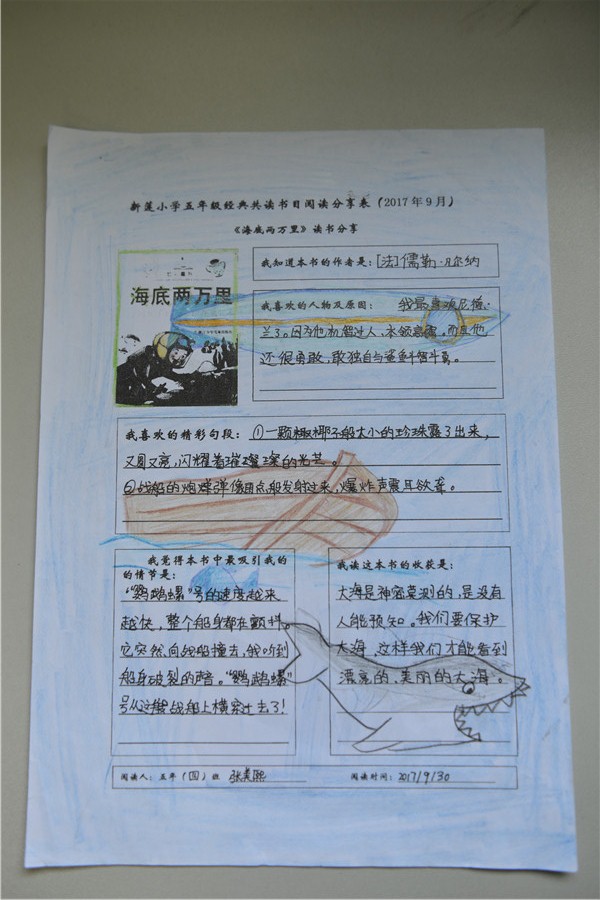 新莲小学五年级经典共读书目阅读分享表（2017年9月）
《海底两万里》读书分享
海底两万里
我知道本书的作者是：[法]儒勒·凡尔纳
我喜欢的人物及原因： 我最喜欢尼德·
兰了。因为他机智过人、本领高强，而且他
还很勇敢，敢独自与鲨鱼斗智斗勇。
我喜欢的精彩句段：①一颗椰子般大小的珍珠露了出来，
又圆又亮，闪耀着璀璨的光芒。
②战船的炮弹像雨点般发射过来，爆炸声震耳欲聋。
我觉得本书中最吸引我的
的情节是：
“鹦鹉螺”号的速度越来
越快，整个船身都在颤抖。
它突然向战船撞去，我听到
船身破裂的声音。“鹦鹉螺”
号从这艘战船上横察过去了！
我读这本书的收获是：
大海是神密莫测的，是没有
人能预知。我们要保护
大海，这样我们才能看到
漂亮的、美丽的大海。
阅读人：五年（四）班 张美熙
阅读时间：2017/9/30